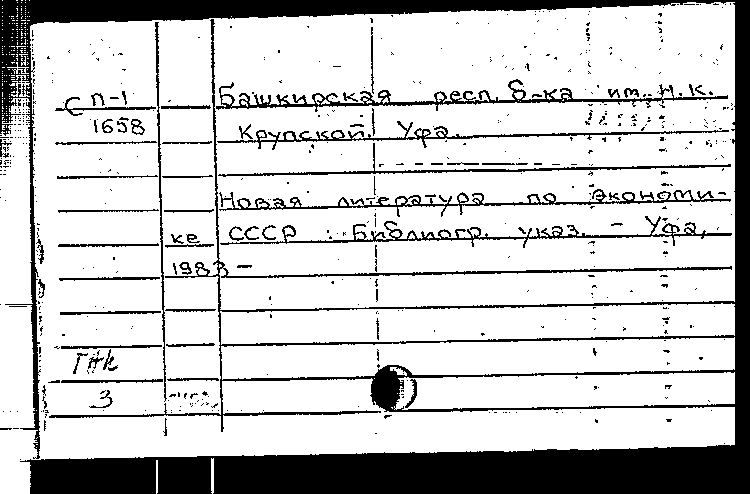 С П-1 Башкирская респ. б-ка им. Н.К.
1658 Крупской. Уфа.
Новая литература по экономи-
ке СССР : Библиогр. указ. - Уфа,
1983 -
ГНК
3